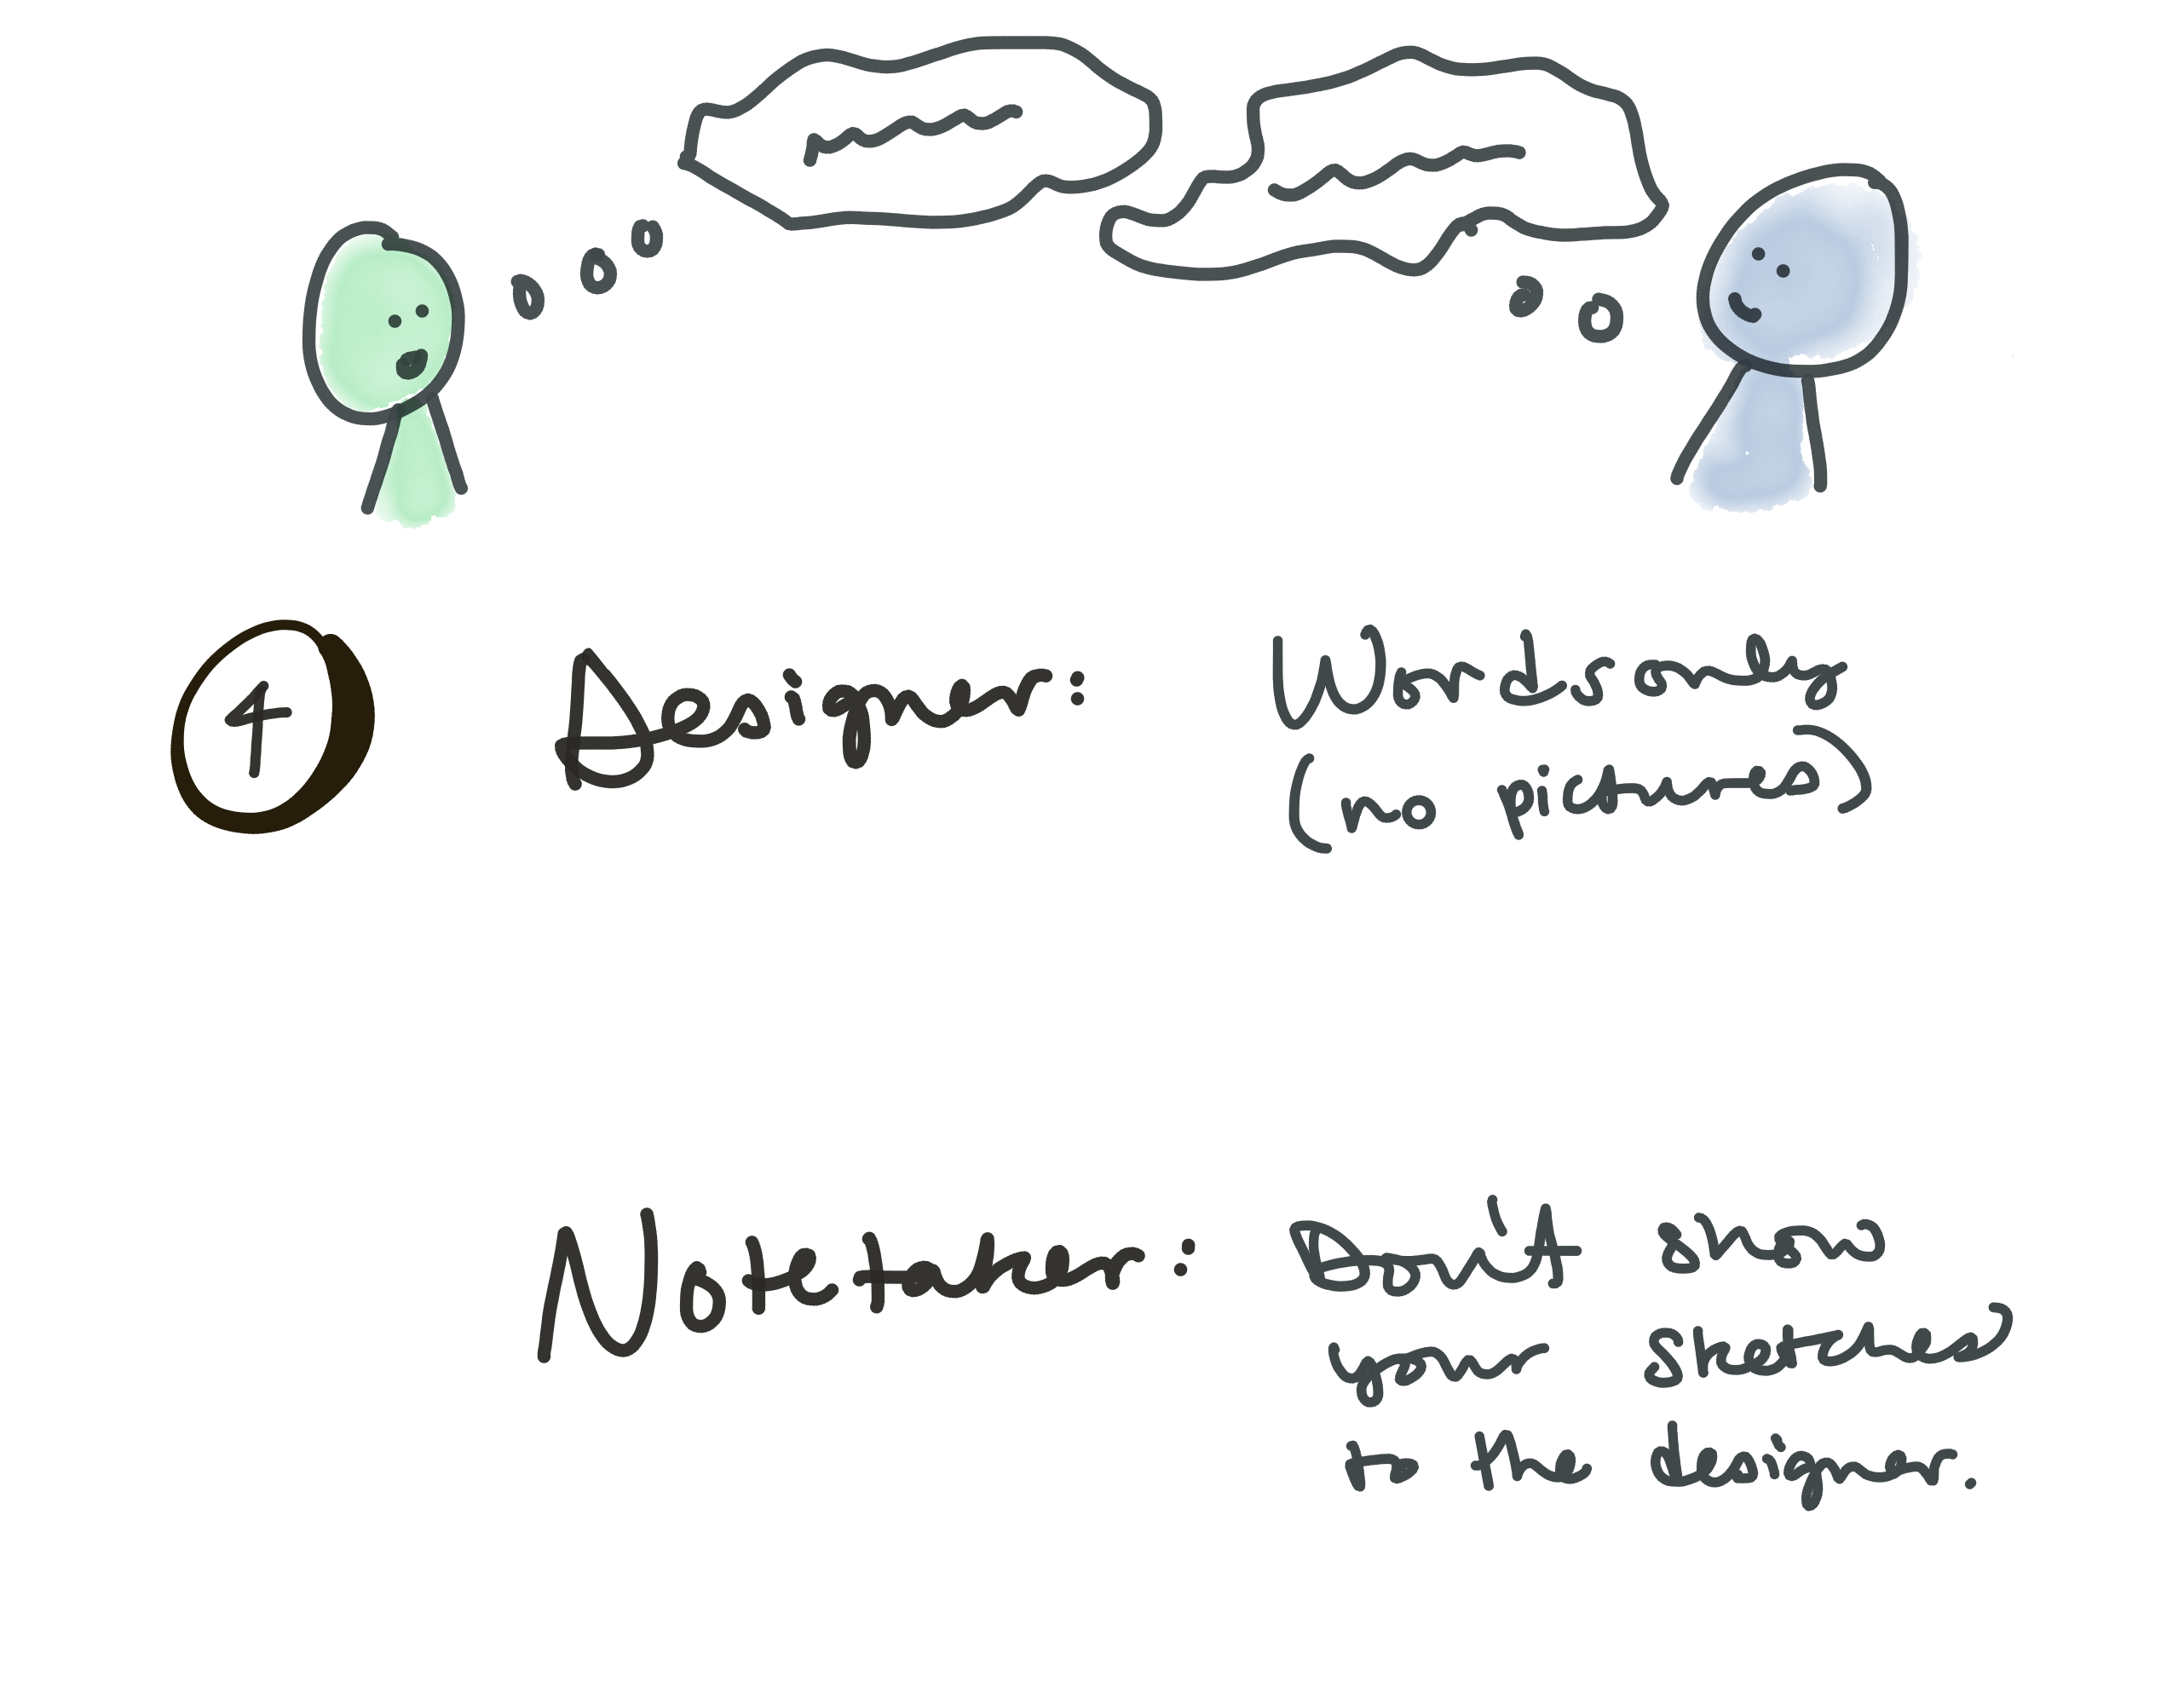 4 Designer: Words only
(no pictures)
Notetaker: Don't show
your sketches
to the designer.